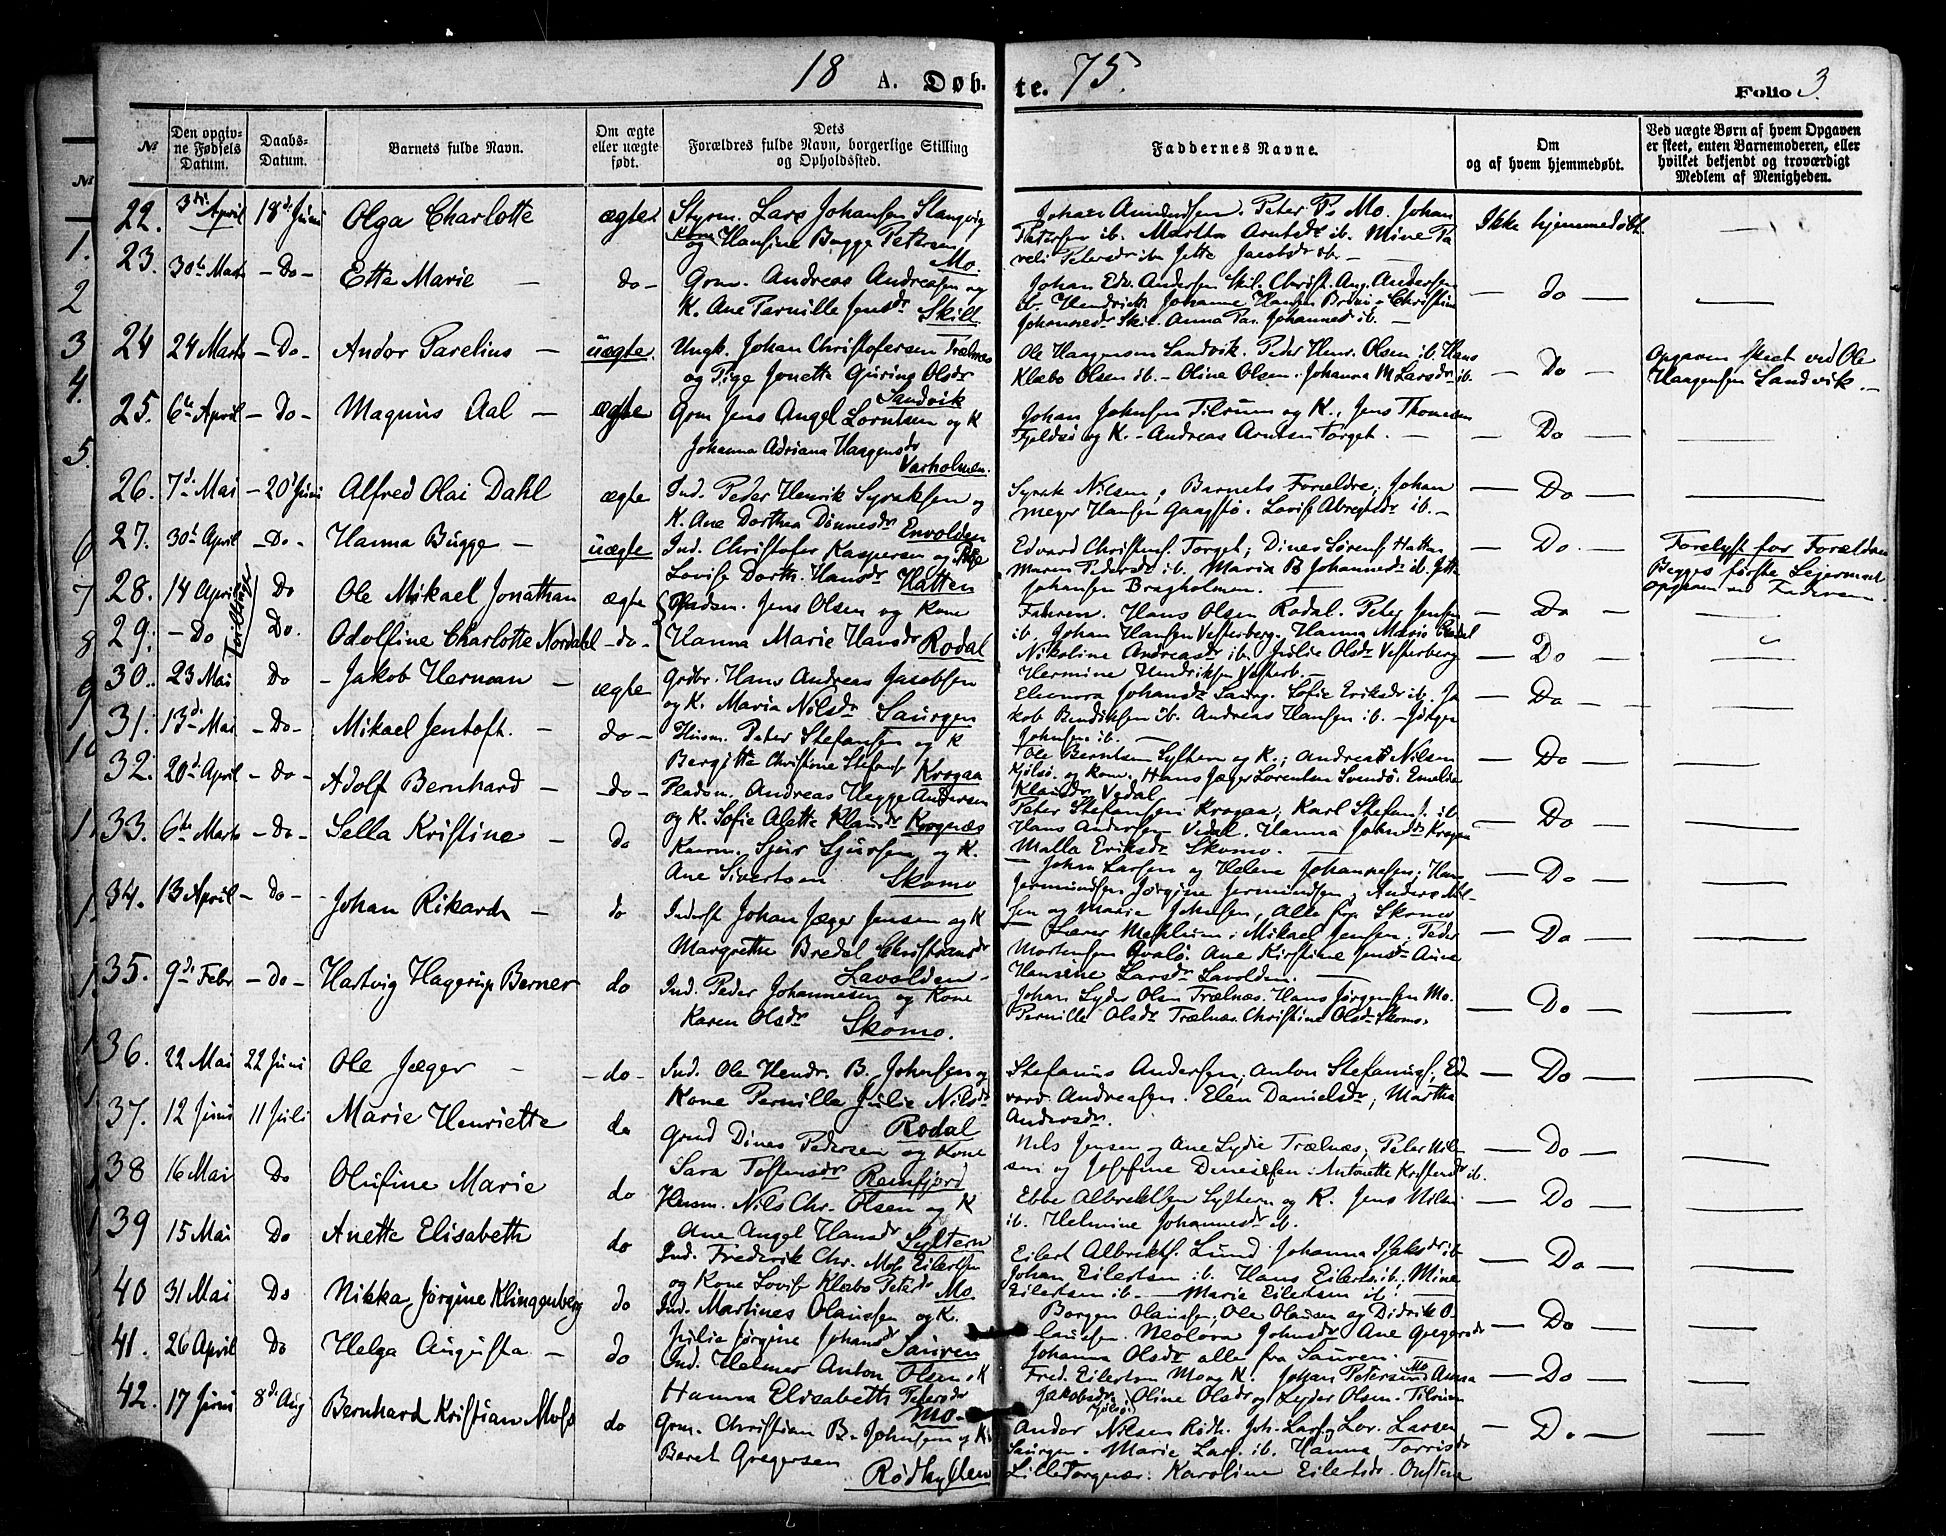 18 A. Døb- te. 75. Folio 3
№
Den opgivne Fødsels Datum.
Daabs-Datum.
Barnets fulde Navn.
Om ægte eller uægte født.
Dets Forældres fulde Navn, borgerlige Stilling og Opholdssted.
Faddernes Navne.
Om og af hvem hjemmedøbt.
Ved uægte Børn af hvem Opgaven er skeet, enten Barnemoderen, eller hvilket bekjendt og troværdigt Medlem af Menigheden.
22. 3die April 18de Juni Olga Charlotte ægte Styrm. Lars Johansen Stangvig
og Kone Hansine Bugge Petersen Mo.
Johan Amundsen. Peter Ps Mo. Johan
Petersen ib. Martha Arntsdr ib. Mine Pa
Ikke hjemmedøbt
23. 30te Marts - Do - Ette Marie - do - Grm. Andreas Andreasen og
K. Ane Pernille Jensdr Skill
Johan Edv. Andersen Skil. Christ. Aug. Andersen
Johannesdr Skil. Anna Pa. Johannesd ib. -
- do -
24 24 Marts - Do - Andor Parelius - uægte. Ungk. Johan Christofersen Trælnes
og Pige Jonetta Guring Olsdr Sandvik
Ole Haagensen Sandvik. Peder Henr. Olsen ib. Hans
Klæbo Olsen ib. - Oline Olsen. Johanna M Larsdr ib.
- Do - Opgaven skeet ved Ole
Haagensen Sandvik. -
25. 6te April - Do - Magnus Aal - ægte Grm Jens Angel Lorntsen og K
Johanna Adriana Haagensdr Varholmen.
Johan Johnsen Tilrum og K., Jens Thomesen
Fjeldsø og K. - Andreas Arntsen Torget. -
- Do -
26. 7de Mai - 20de Juni Alfred Olai Dahl ægte Ind. Peder Henrik Syraksen og
K. Ane Dorthea Dønnesdr Envolden
Syrak Nilsen, Barnets Forældre; Johan
Meyer Hansen
- Do -
27. 30te April - Do - Hanna Bugge - uægte Ind. Christofer Kaspersen og Pige
Lovise Dorth. Hansdr Hatten
Edvard Christens. Torget; Dines Sørens. Hatten
Maren Pedersdr ib. Maria B Johannesd ib. Jetta
Johansen Bragholmen. -
- Do. - Forelyst for Forældrene
Begges første Leiermaal
28. 14 April Do Ole Mikael Jonathan ægte Pladsm. Jens Olsen og Kone
Faderen. Hans Olsen Rodal. Peter Jensen
- Do -
29. - Do Do. Adolfine Charlotte Nordahl - do - Hanna Marie Hansdr Rodal
ib. Johan Hansen Vesterberg. Hanna Marie Rodal
Nikoline Andreasdr ib. Julie Olsdr Vesterberg
Hermine Hendriksen Vesterb. -
- Do -
30. 23 Mai Do - Jakob Herman - ægte Grdbr. Hans Andreas Jacobsen
og K. Maria Nilsdr Saurgen
Eleonora Johansdr Saurg. Sofie Eriksdr ib. Ja
kob Bendiksen ib. Andreas Hansen ib. - Jørgen
Johnsen ib.
- Do -
31. 13de Mai - Do - Mikael Jentoft. - do - Husm. Peter Stefansen og K
Bergitte Christine Stefansd Krogaa
Ole Berntsen Sylthern og K.; Andreas Nilsen
- Do -
32. 20de April - Do - Adolf Bernhard - - do - Pladsm. Andreas Hegge Andersen
og K. Sofie Alette Klausdr Krognæs
Peter Stefansen Krogaa, Karl Stefans. ib.
Hans Andersen Vedal. Hanna Johnsdr Krogan
- Do -
33. 6te Marts - Do - Sella Kristine - do Kaarm. Sjur Sjursen og K.
Ane Sivertsen Skomo
Malla Eriksdr Skomo.
- Johan Larsen og Helene Johannesen; Hans
Jermundsen Jørgine Jermundsen; Anders Nil-
sen og Marie Johnsen, Alle fra Skomo
- Do -
34. 13 April - do - Johan Rikard - do Inderst Johan Jæger Jensen og K
Margrethe Bredal Christiansdr Lavolden -
Lærer Mehlum; Mikael Jensen; Peder
Mortensen Qvalø. Ane Kirstine Jensdr Aune
Hansine Larsdr Lavolden. -
- Do -
35. 9de Febr - Do - Hartvig Hagerup Berner do Ind. Peder Johannesen og Kone
Karen Olsdr Skomo.
Johan Lyder Olsen Trælnæs. Hans Jørgensen Mo.
Pernille Olsdr Trælnæs. Christine Olsd Skomo.
- Do -
36. 22 Mai 22 Juni Ole Jæger - - do - Ind. Ole Hendr. B. Johnsen og
Kone Pernille Julie Nilsdr Rodal
Stefanus Andersen; Anton Stefanuss.; Ed
vard Andreasen. Elen Danielsdr; Martha
Andersdr.
- Do -
37. 12 Juni 11 Juli Marie Henriette do Grmd Dines Pedersen og Kone
Sara Toftensdr Remfjord
Nils Jensen og Ane Lydie Trælnæs; Peter Nil-
sen og Josefine Dinesesen. Antonette Kristensdr ib.
- Do -
38 16 Mai Do Olufine Marie do Husm. Nils Chr. Olsen og K
Ane Angel Hansdr Syltern
Ebbe Albrektsen Syltern og K. Jens Nilsen
ib. Helmine Johannesdr ib.
- Do -
39 15 Mai Do Anette Elisabeth do Ind. Frederik Chr. Mosˢ Eilertsen
og Kone Lovise Klæbo Petersdr Mo.
Eilert Albrekts. Lund Johanna Isaksdr ib
Johan Eilertsen ib. Hans Eilerts. ib.; Mine
Eilertsen ib. - Marie Eilertsen ib. -
- Do -
40 31 Mai Do Nikka Jørgine Klingenberg do Ind. Martines Olaussen og K.
Julie Jørgine Johansdr Sauren
Borgen Olaussen; Ole Olausen og Didrik O-
laussen. Neolora Johnsdr Ane Gregersdr
Johanna Olsdr alle fra Sauren. -
- Do -
41. 26 April Do Helga Augusta - do Ind. Helmer Anton Olsen & K
Hanna Elisabeth Petersdr Mo -
Fred. Eilertsen Mo og K. Johan Petersen Mo Anna
Jakobsdr; Oline Olsdr og Lyder Olsen. Tilrum
- Do -
42. 17 Juni 8de Aug Bernhard Kristian Mosˢ do Grm. Christian B. Johnsen og K.
Beret Gregersen Rødhyllen
Andor Nilsen Rødh. Joh. Lars. og Lor. Larsen
Saurgen. Marie Lars. ib. Hanna Torrisdr
Lilletorgnæs. Karoline Eilertsdr.
- Do -
1.
2
3
4.
5.
6
7
8
9
10